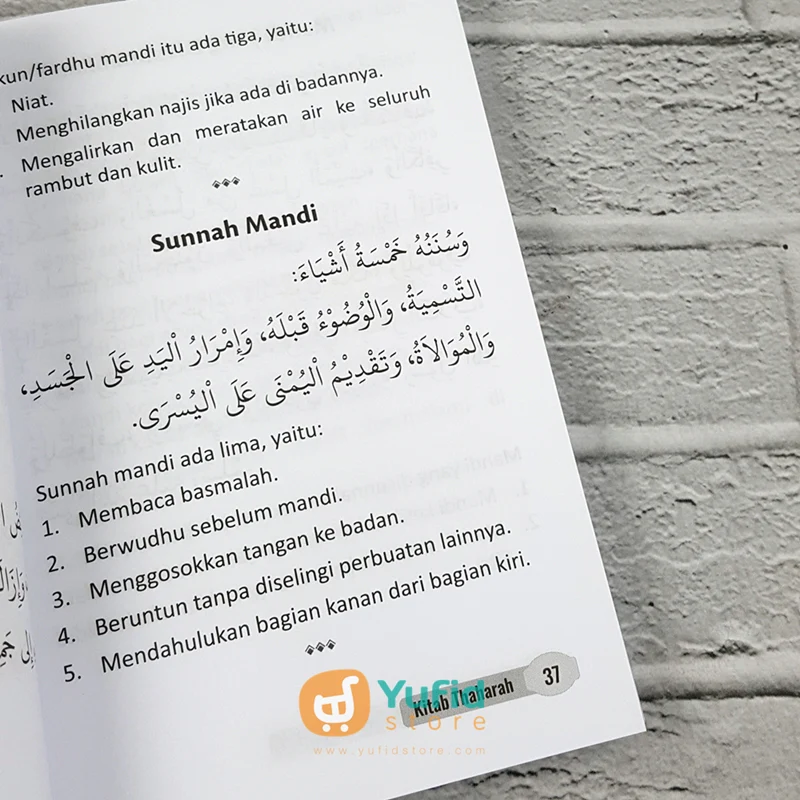 kun/fardhu mandi itu ada tiga, yaitu:
Niat.
Menghilangkan najis jika ada di badannya.
Mengalirkan dan meratakan air ke seluruh
rambut dan kulit.
Sunnah Mandi
وَسُنَنُهُ خَمْسَةُ أَشْيَاءَ:
التَّسْمِيَةُ، وَالْوُضُوْءُ قَبْلَهُ، وَإِمْرَارُ الْيَدِ عَلَى الْجَسَدِ،
وَالْمُوَالَاةُ، وَتَقْدِيْمُ الْيُمْنَى عَلَى الْيُسْرَى.
Sunnah mandi ada lima, yaitu:
1. Membaca basmalah.
2. Berwudhu sebelum mandi.
3. Menggosokkan tangan ke badan.
4. Beruntun tanpa diselingi perbuatan lainnya.
5. Mendahulukan bagian kanan dari bagian kiri.
Kitab Thaharah 37
Yufid
store
www.yufidstore.com